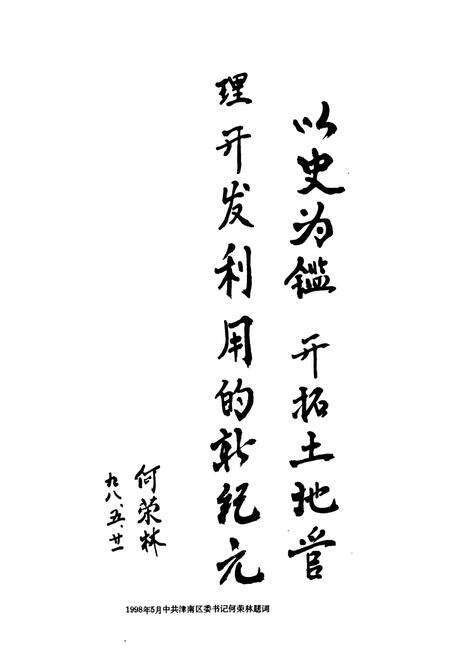 以史为鑑 开拓土地管
理开发利用的新纪元
何荣林
九八、五、廿一
1998年5月中共津南区委书记何荣林题词